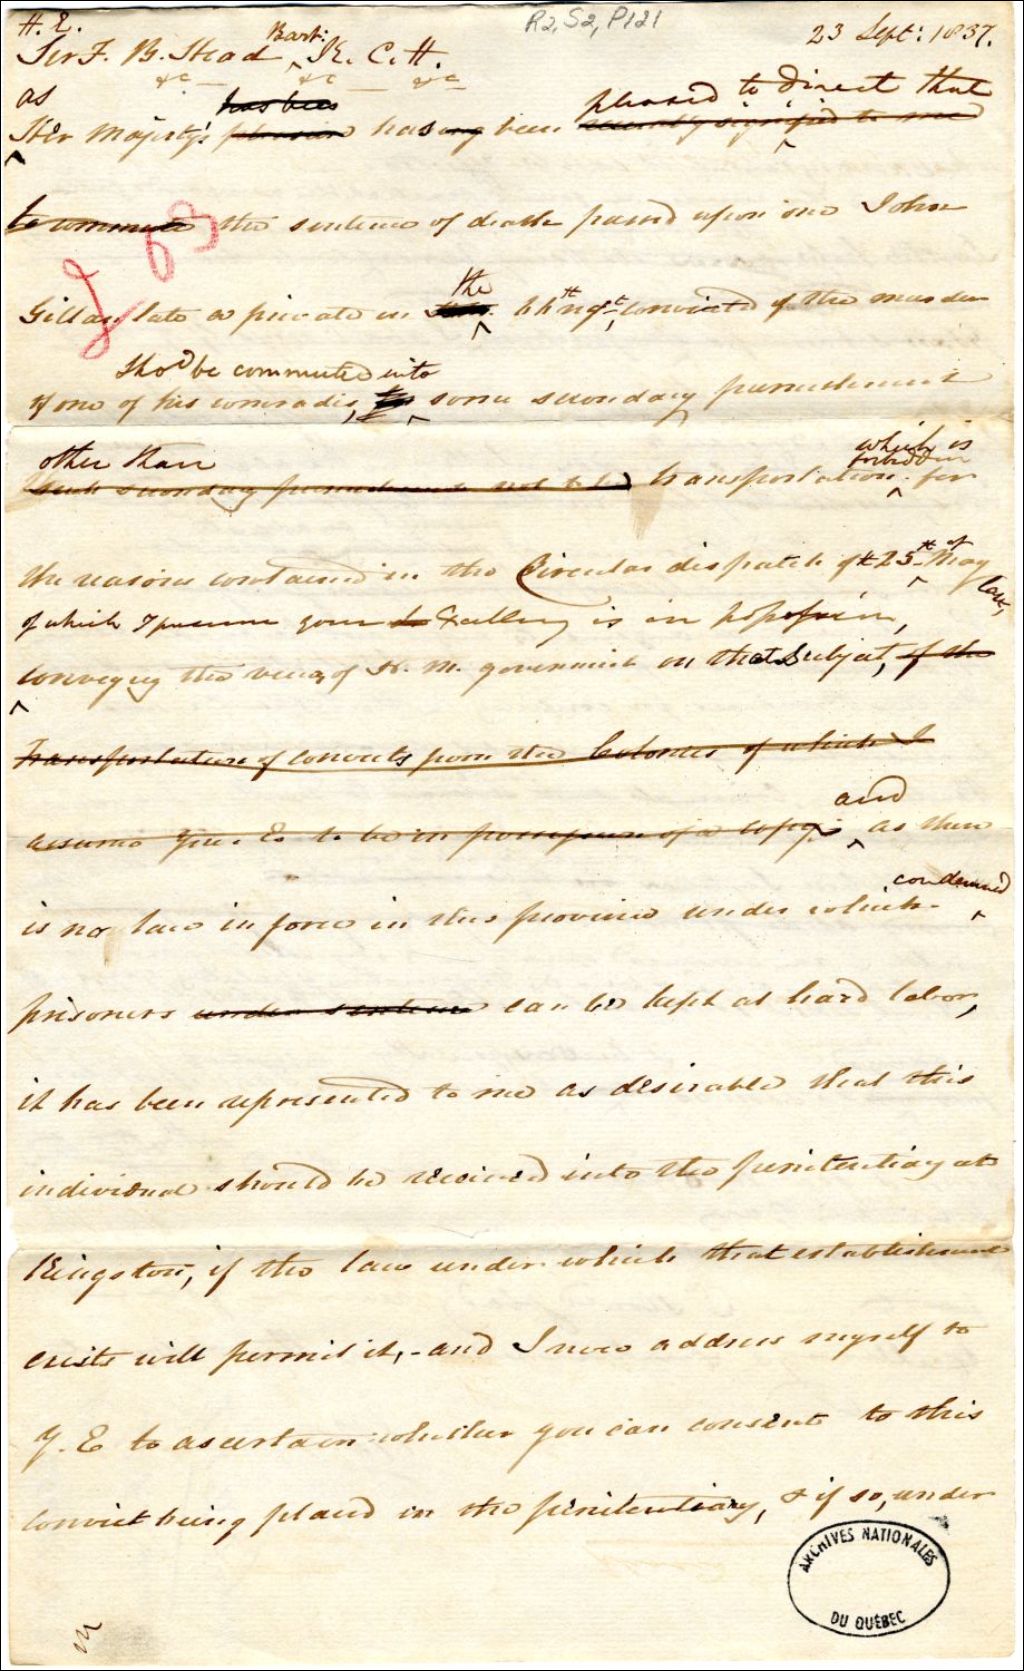 R2, S2, P121
H. E.
23 Sept: 1837.
Bart:
Sir F. B. Head K. C. H.
&c &c &c
as has been pleased to direct that
Her Majesty's pleasure having been recently signified to me
to commute the sentence of death passed upon one John
the
Gillan late a private in 66th Regt. convicted of the murder
Shod be commuted into
of one of his comrades, to some secondary punishment
other than which is
forbidden
such secondary punishment not to be transportation. for
the reasons contained in the Circular dispatch of 25th of May
last,
of which I presume your Excellency is in possession,
conveying the views of H. M. government on that Subject, of the
Transportation of convicts from the Colonies of which I
and
assume Your E. to be in possession of a copy as there
condemned
is no law in force in this province under which
prisoners under sentence can be kept at hard labor,
it has been represented to me as desirable that this
individual should be received into the penitentiary at
Kingston, if the law under which that establishment
exists will permit it, - and I now address myself to
Y. E to ascertain whether you can consent to this
convict being placed in the penitentiary, & if so, under
ARCHIVES NATIONALES
DU QUÉBEC